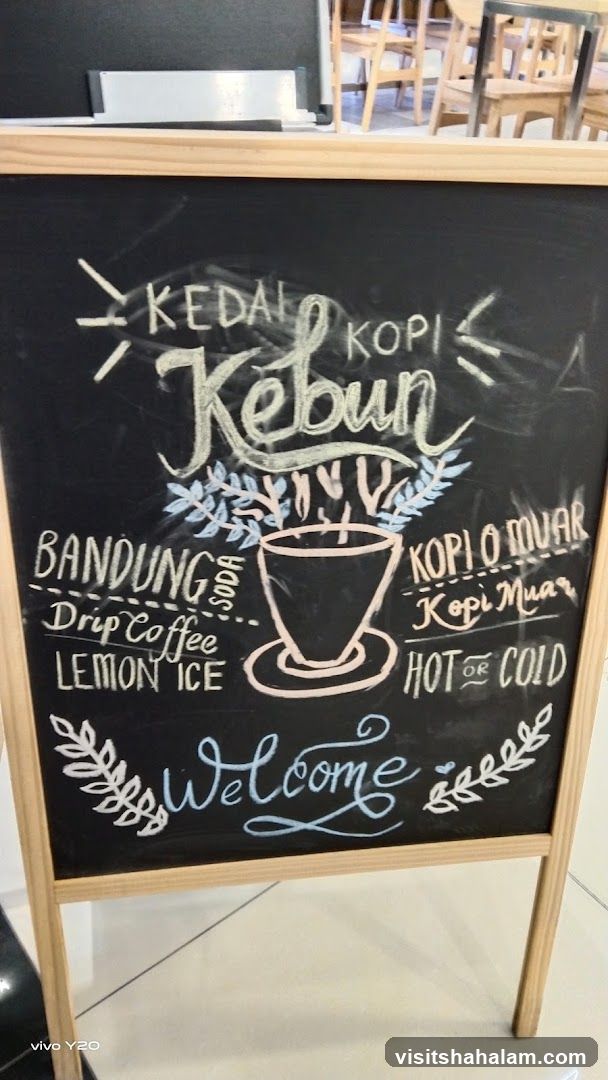 KEDAI KOPI
Kebun
BANDUNG SODA
Drip Coffee
LEMON ICE
KOPI O MUAR
Kopi Muar
HOT OR COLD
Welcome
vivo Y20
visitshahalam.com